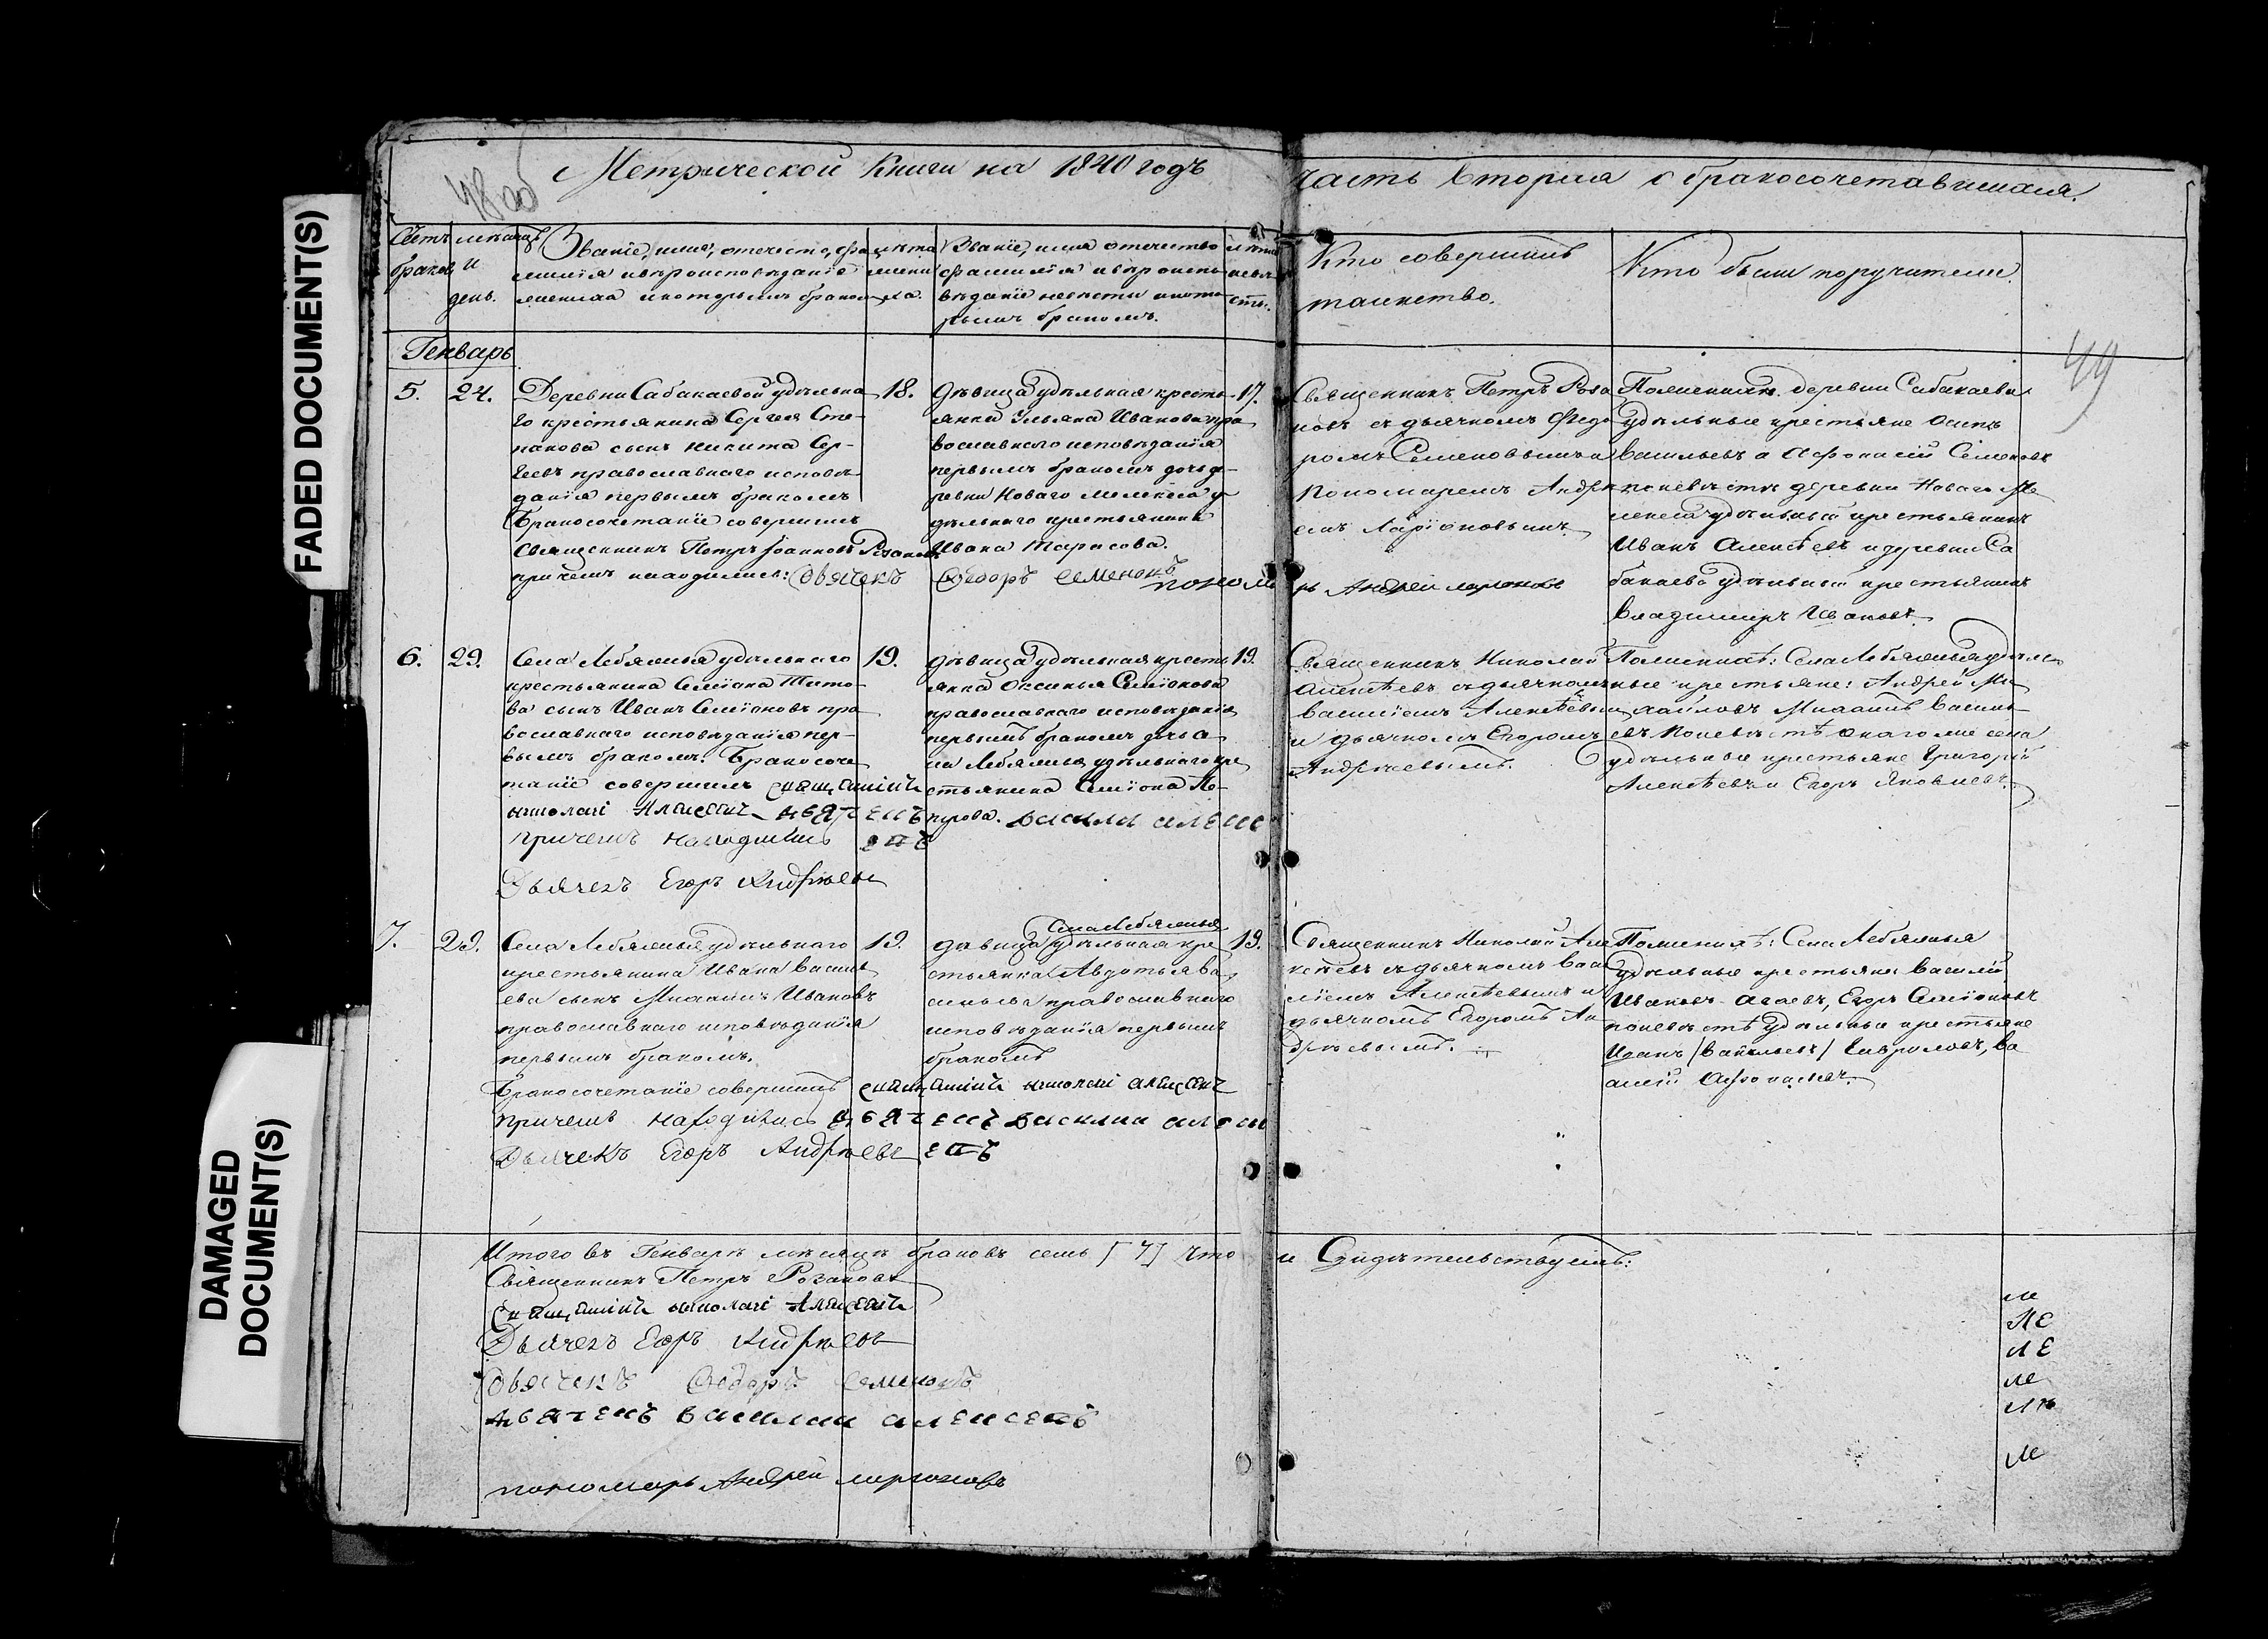 FADED DOCUMENT(S)
DAMAGED
DOCUMENT(S)
48об
Метрической Книги на 1840 годъ
часть вторая о бракосочетавшихся.
49
Счетъ браковъ
мѣсяцъ и день.
Званіе, имя, отчество, фа-
милія и вѣроисповѣданіе
жениха и которымъ бракомъ
лѣта жениха.
Званіе, имя отчество
фамилія и вѣроиспо-
вѣданіе невѣсты и кото-
рымъ бракомъ.
лѣта невѣсты.
Кто совершилъ
таинство.
Кто были поручители.
Генварь
5.
24.
Деревни Сабакаевой удѣльна
го крестьянина Сергея Сте-
панова сынъ Никита Сер-
геевъ православнаго исповѣ-
данія первымъ бракомъ
Бракосочетаніе совершилъ
священникъ Петръ Іоанновъ Розановъ
при чемъ находились: Дьячекъ Федоръ Семеновъ
пономарь Андрей Ларионовъ
18.
дѣвица удѣльная кресть-
янка Ульяна Иванова пра
вославнаго исповѣданія
первымъ бракомъ дочь де-
ревни Новаго Мелекеса у-
дѣльнаго крестьянина
Ивана Тарасова.
17.
Священникъ Петръ Роза
новъ съ дьячкомъ Федо
ромъ Семеновымъ и
Пономаремъ Андре
емъ Ларіоновымъ.
По женихѣ деревни Сабакаевы
удѣльные крестьяне Осипъ
Васильевъ и Афонасій Семеновъ
по невѣстѣ деревни Новаго Ме
лекеса удѣльный крестьянинъ
Иванъ Алексѣевъ и деревни Са
бакаевы удѣльный крестьянинъ
Владимиръ Ивановъ.
6.
29.
Села Лебяжья удѣльнаго
крестьянина Семіона Тито-
ва сынъ Иванъ Семіоновъ пра
вославнаго исповѣданія пер-
вымъ бракомъ. Бракосоче
таніе совершилъ священникъ
николаі Алексеевъ дьячекъ василий алексеевъ
при чемъ находились
Дьячекъ Егоръ Андреевъ
19.
дѣвица удѣльная кресть
янка Оксинья Семіонова
православнаго исповѣданія
первымъ бракомъ дочь се
ла Лебяжья удѣльнаго кре
стьянина Семіона Пе-
трова.
19.
Священникъ Николай
Алексѣевъ съ дьячкомъ
Василіемъ Алексѣевымъ
и дьячкомъ Егоромъ
Андреевымъ.
По женихѣ: Села Лебяжья удѣль
ные крестьяне: Андрей Ми
хайловъ Михаилъ Василь
евъ По невѣстѣ онаго же села
удѣльные крестьяне Григорій
Алексѣевъ и Егоръ Яковлевъ.
7.
29.
Села Лебяжья удѣльнаго
крестьянина Ивана Василь
ева сынъ Михаилъ Ивановъ
православнаго исповѣданія
первымъ бракомъ.
Бракосочетаніе совершилъ священникъ николаі алексеевъ
при чемъ находились дьячекъ василии алексеевъ
Дьячекъ Егоръ Андреевъ
19.
Села Лебяжья
дѣвица удѣльная кре
стьянка Авдотья Ва
сильева православнаго
исповѣданія первымъ
бракомъ
19.
Священникъ Николай Але
ксѣевъ съ дьячкомъ Васи
ліемъ Алексѣевымъ и
дьячкомъ Егоромъ Ан
дреевымъ.
По женихѣ: Села Лебяжья
удѣльные крестьяне Василій
Ивановъ Агаевъ, Егоръ Семіоновъ
по невѣстѣ удѣльные крестьяне
Иванъ /Васильевъ/ Гавриловъ, Ва
силій Афонасьевъ.
Итого въ Генварѣ мѣсяцѣ браковъ семь [7] что и Свидѣтельствуемъ:
Священникъ Петръ Розановъ
священникъ николаі Алексеевъ
Дьячекъ Егоръ Андреевъ
Дьячекъ Федоръ Семеновъ
дьячекъ василии алексеевъ
пономарь Андрей ларионовъ